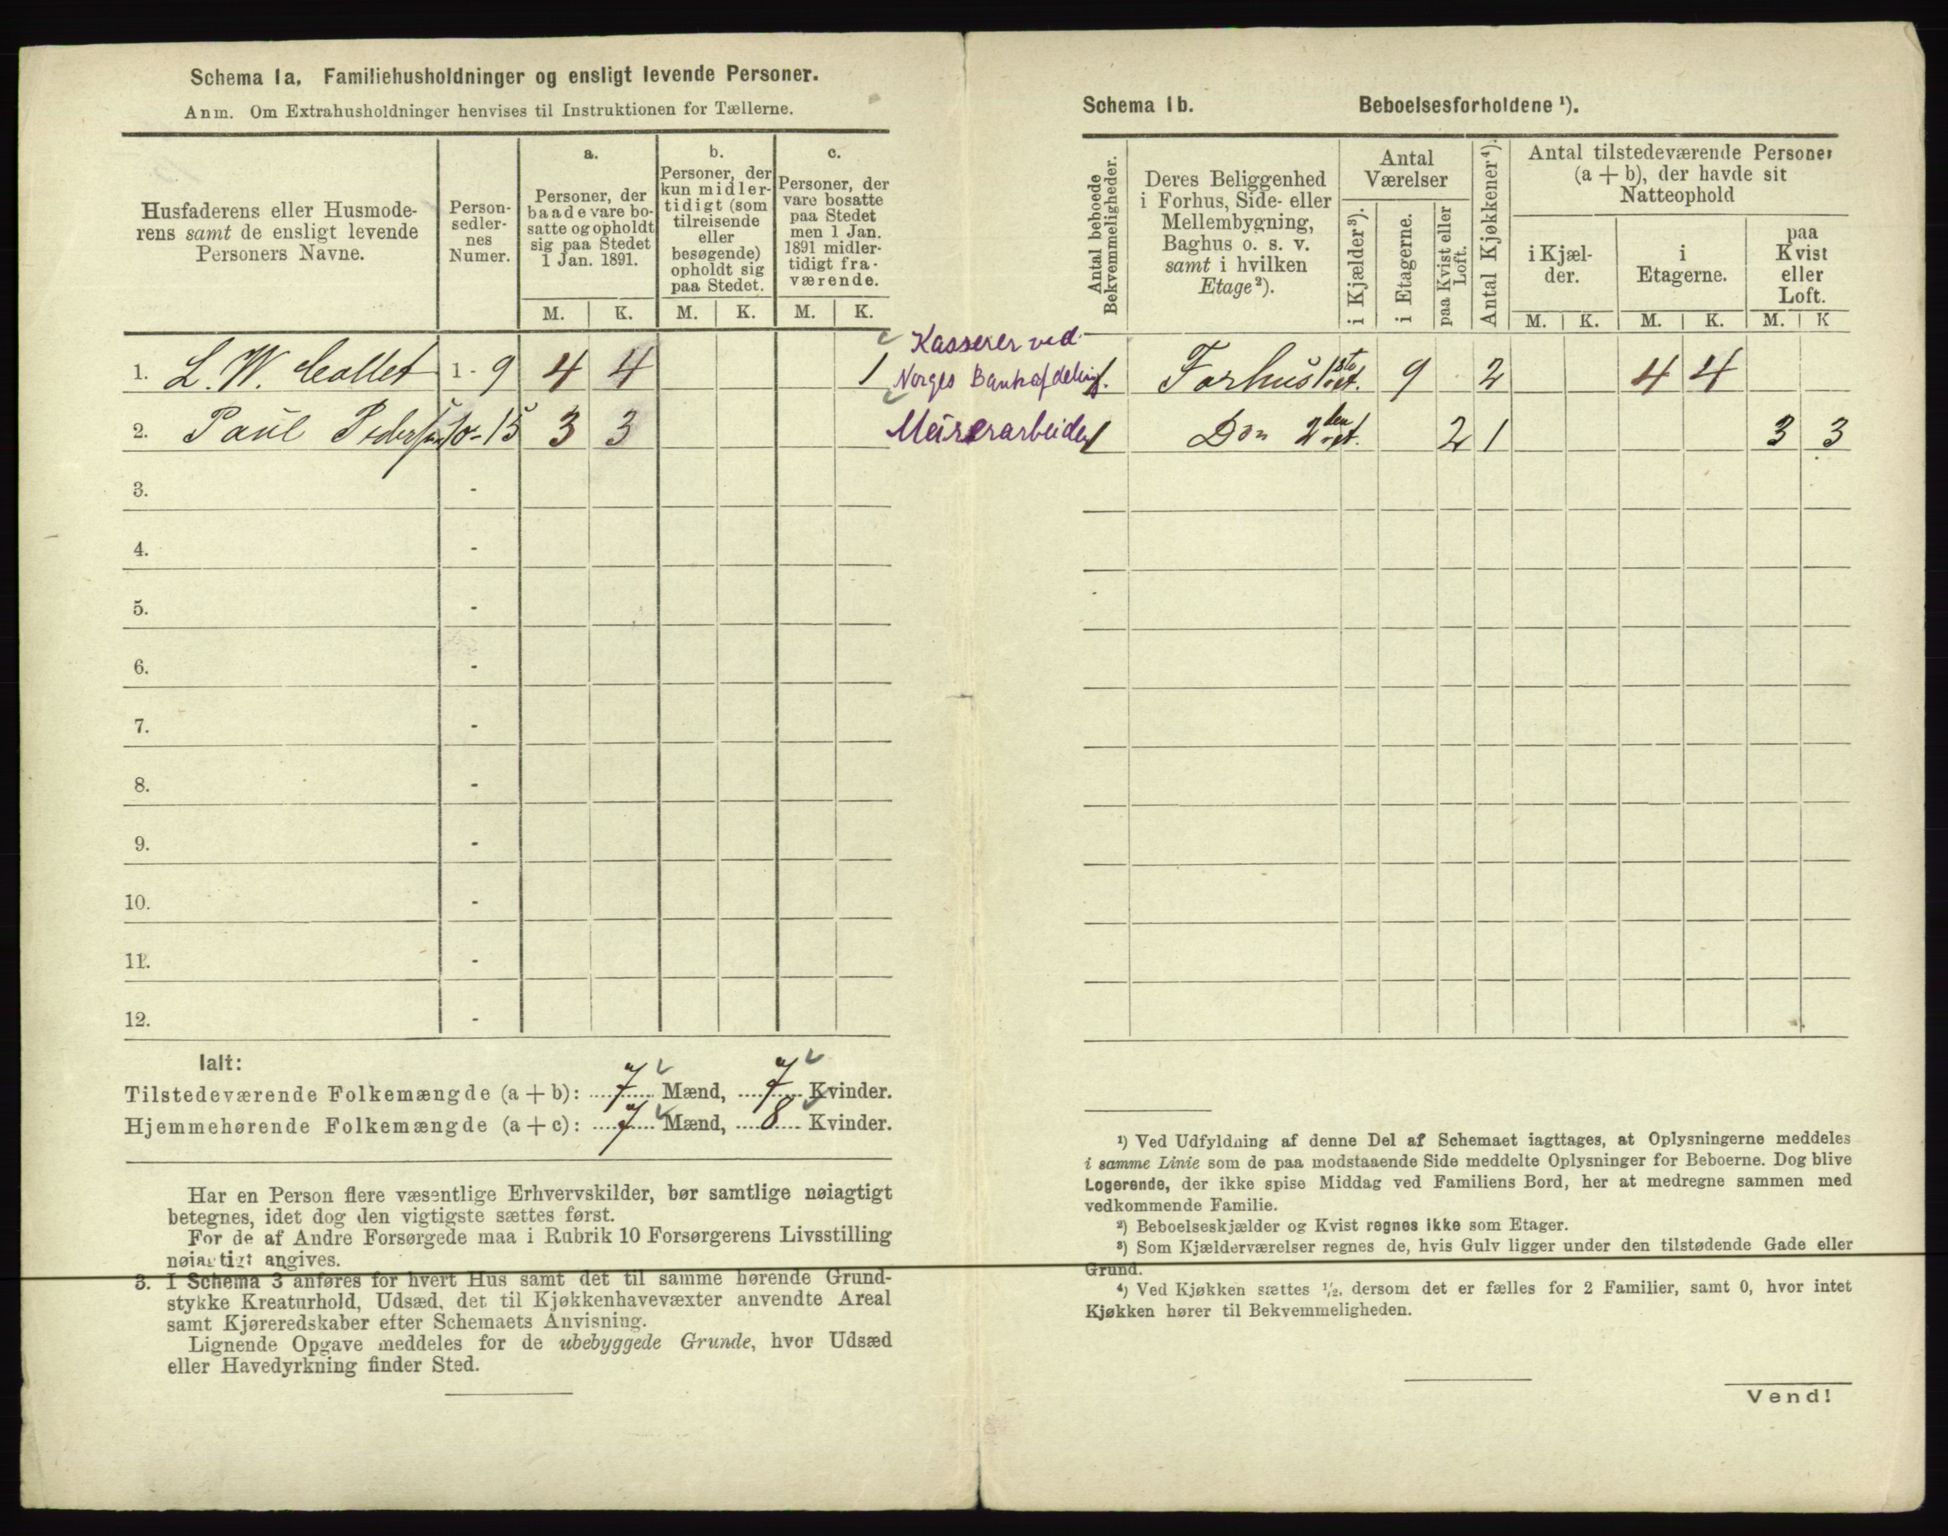 Schema 1a. Familiehusholdninger og ensligt levende Personer.
Anm. Om Extrahusholdninger henvises til Instruktionen for Tællerne.
Husfaderens eller Husmode-
rens samt de ensligt levende
Personers Navne.
Person-
sedler-
nes
Numer.
a.
Personer, der
baade vare bo-
satte og opholdt
sig paa Stedet
1 Jan. 1891.
b.
Personer, der
kun midler-
tidigt (som
tilreisende
eller
besøgende)
opholdt sig
paa Stedet.
c.
Personer, der
vare bosatte
paa Stedet
men 1 Jan.
1891 midler-
tidigt fra-
værende.
M. K. M. K. M. K.
1. L. W. Collet 1 - 9 4 4 1
2. Paul Pedersen 10 - 15 3 3
3. -
4. -
5. -
6. -
7. -
8. -
9. -
10. -
11. -
12. -
Ialt:
Tilstedeværende Folkemængde (a + b): 7 Mænd, 7 Kvinder.
Hjemmehørende Folkemængde (a + c): 7 Mænd, 8 Kvinder.
Har en Person flere væsentlige Erhvervskilder, bør samtlige nøiagtigt
betegnes, idet dog den vigtigste sættes først.
For de af Andre Forsørgede maa i Rubrik 10 Forsørgerens Livsstilling
nøiagtigt angives.
3. I Schema 3 anføres for hvert Hus samt det til samme hørende Grund-
stykke Kreaturhold, Udsæd, det til Kjøkkenhavevæxter anvendte Areal
samt Kjøreredskaber efter Schemaets Anvisning.
Lignende Opgave meddeles for de ubebyggede Grunde, hvor Udsæd
eller Havedyrkning finder Sted.
Kasserer ved
Norges Bankafdeling
Meierarbeider
Schema 1b. Beboelsesforholdene ¹).
Antal beboede
Bekvemmeligheder.
Deres Beliggenhed
i Forhus, Side- eller
Mellembygning,
Baghus o. s. v.
samt i hvilken
Etage²).
Antal
Værelser
i Kjælder³).
i Etagerne.
paa Kvist eller
Loft.
Antal Kjøkkener⁴).
Antal tilstedeværende Personer
(a + b), der havde sit
Natteophold
i Kjæl-
der.
i
Etagerne.
paa
Kvist
eller
Loft.
M. K. M. K. M. K
1. Forhus 1ste et. 9 2 4 4
1 Do 2den et. 2 1 3 3
¹) Ved Udfyldning af denne Del af Schemaet iagttages, at Oplysningerne meddeles
i samme Linie som de paa modstaaende Side meddelte Oplysninger for Beboerne. Dog blive
Logerende, der ikke spise Middag ved Familiens Bord, her at medregne sammen med
vedkommende Familie.
²) Beboelseskjælder og Kvist regnes ikke som Etager.
³) Som Kjælderværelser regnes de, hvis Gulv ligger under den tilstødende Gade eller
Grund.
⁴) Ved Kjøkken sættes ½, dersom det er fælles for 2 Familier, samt 0, hvor intet
Kjøkken hører til Bekvemmeligheden.
Vend!